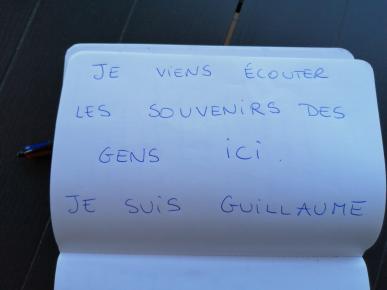 JE VIENS ÉCOUTER
LES SOUVENIRS DES
GENS ICI.
JE SUIS GUILLAUME